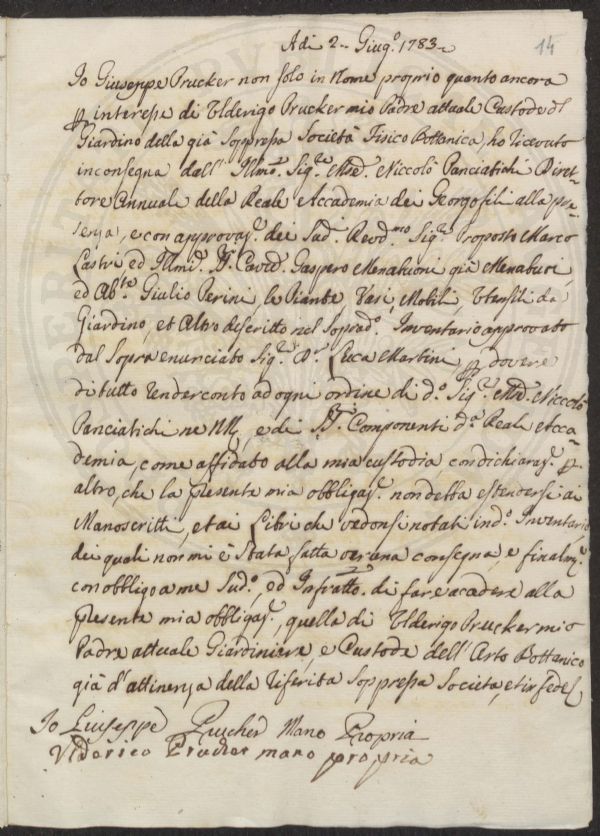 Adi 2 Giug.º 1783
14
Io Giuseppe Prucker non solo in Nome proprio quanto ancora
p interesse di Ulderigo Prucker mio Padre attuale Custode del
Giardino della già Soppressa Società Fisico Bottanica, ho ricevuto
in consegna dall' Illmo. Sig.re Mse. Niccolò Panciatichi Diret=
tore Annuale della Reale Accademia dei Georgofili alla pre=
senza, e con approvaz.e dei Sud. Revd.mo Sig.re Proposto Marco
Lastri ed Illmi. SS. Cavid. Gaspero Menabuoni già Menabuci,
ed Ab.te Giulio Perini, le Piante Vasi, Mobili, Utensili da
Giardino, et Altro descritto nel Soprad.º Inventario approvato
dal Sopra enunciato Sig.re D.r Luca Martini p dovere
di tutto render conto ad ogni ordine di d.º Sig.re Mse. Niccolò
Panciatichi ne NN, e di SS.ri Componenti d.a Reale Acca=
demia, come affidato alla mia custodia con dichiaraz.e p
altro, che la presente mia obbligaz.e non debba estendersi ai
Manoscritti, et ai Libri che vedonsi notati in d.º Inventario
dei quali non mi è Stata fatta veruna consegna, e finalm.e
con obbligo a me Sud.º, ed Infratto. di fare accedere alla
presente mia obbligaz.e, quella di Ulderigo Prucker mio
Padre attuale Giardiniere, e Custode dell' Orto Bottanico
già d' attinenza della riferita Soppressa Società, et in fede
Io Giuseppe Prucker Mano Propria
Vlderico Prucker mano propria